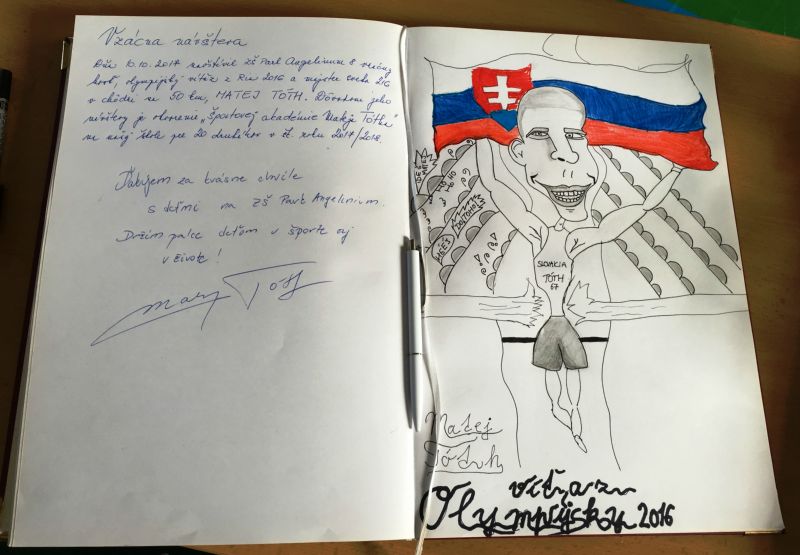 Vzácna návšteva
Dňa 10.10.2017 navštívil ZŠ Pavl Angelinum 8 násobný
olympijský víťaz z Ria 2016 a majster sveta
v chôdzi na 50 km, MATEJ TÓTH. Dôvodom jeho
návštevy je otvorenie „Športovej akadémie Mateja Tótha"
na našej škole pre 20 žiakov v šk. roku 2017/2018.
Ďakujem za krásne chvíle
s deťmi na ZŠ Pavl Angelinum.
Držím palce deťom v športe aj
v živote!
DO TOHO
SLOVAKIA
TÓTH
67
Matej
Tóth
víťaz
Olympijský 2016